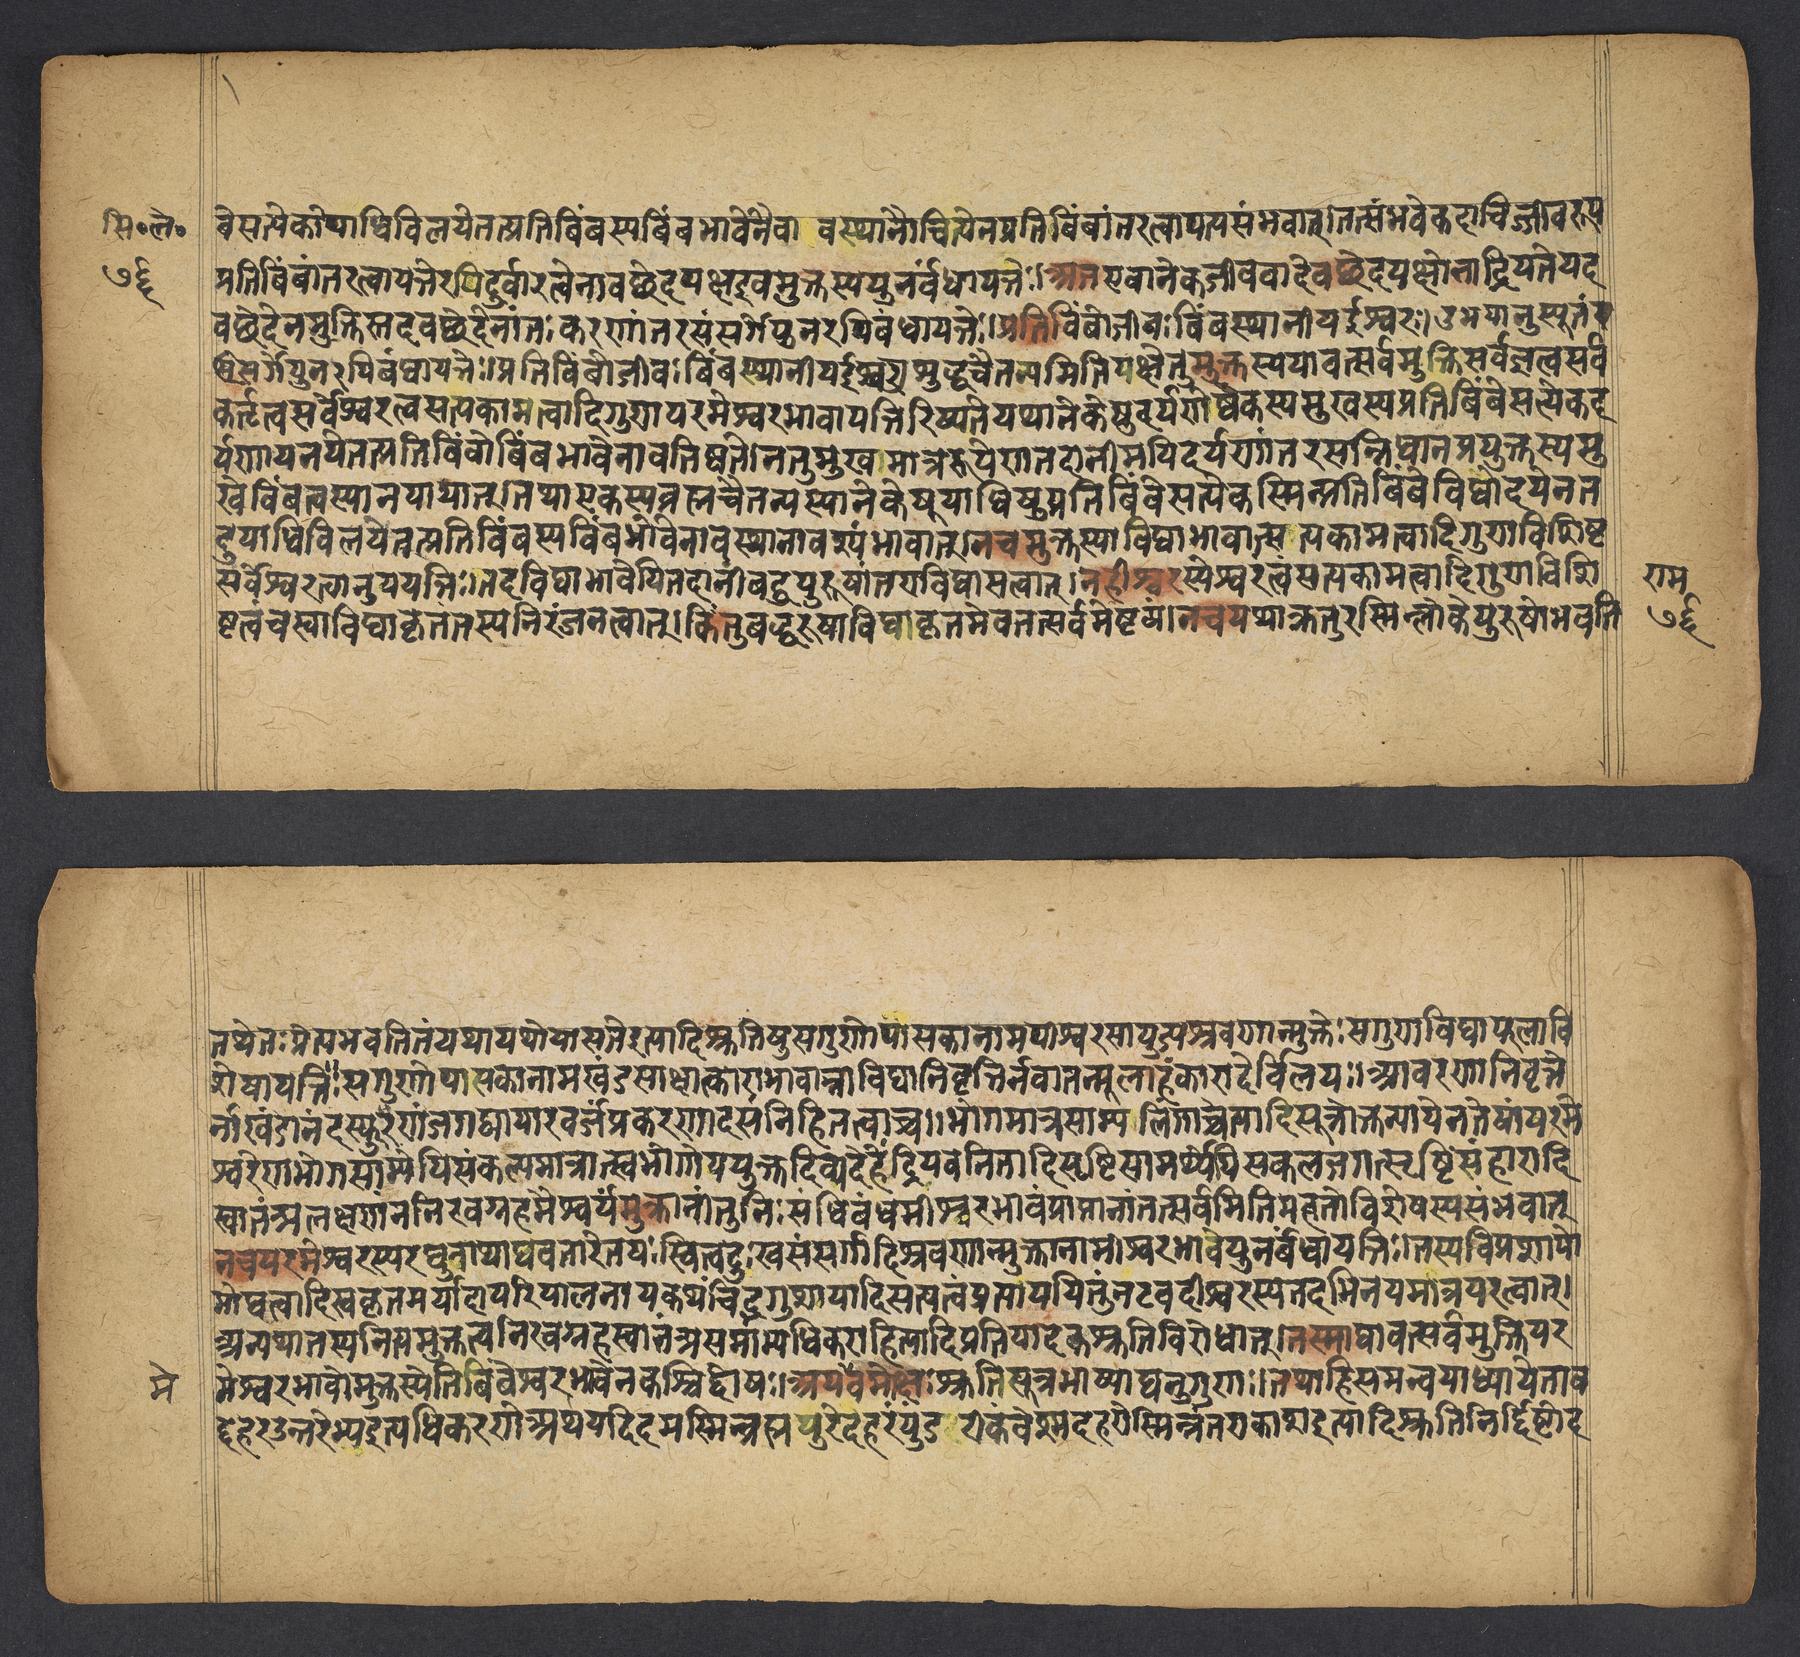 सि॰ले॰
७६
बेसत्येकोपाधिविलयेतत्प्रतिबिंबस्यबिंबभावेनैवा वस्थानौचित्येनप्रतिबिंबांतरत्वापत्यसंभवात्।तत्संभवेकदाचिज्जीवरूप
प्रतिबिंबांतरत्वापत्तेरपिदुर्वारत्वेनावछेदपक्षइवमुक्तस्यपुनर्बंधापत्तेः।अतएवानेकजीववादेवछेदपक्षोनाद्रियतेयद
वछेदेनमुक्तिस्तदवछेदेनांतःकरणांतरसंसर्गेपुनरपिबंधापत्तेः।प्रतिबिंबोजीवःबिंबस्थानीयईश्वरः।उभयानुस्यूतं
संसर्गेपुनरपिबंधापत्तेः।प्रतिबिंबोजीवःबिंबस्थानीयईश्वरःशुद्धचैतन्यमितिपक्षेतुमुक्तस्ययावत्सर्वमुक्तिसर्वज्ञत्वसर्व
कर्तृत्वसर्वेश्वरत्वसत्यकामत्वादिगुणपरमेश्वरभावापत्तिरिष्यतेयथानेकेषुदर्पणेष्वेकस्यमुखस्यप्रतिबिंबेसत्येकद
र्पणापनयेतत्प्रतिबिंबोबिंबभावेनावतिष्ठते।नतुमुखमात्ररूपेणतदानीमपिदर्पणांतरसन्निधानप्रयुक्तस्यमु
खेबिंबत्वस्यानपायात्।तथाएकस्यब्रह्मचैतन्यस्यानेकेषूपाधिषुप्रतिबिंबेसत्येकस्मिन्प्रतिबिंबेविद्योदयेनत
दुपाधिविलयेतत्प्रतिबिंबस्यबिंबभावेनावस्थानावश्यंभावात्।नचमुक्तस्याविद्याभावात्सत्यकामत्वादिगुणविशिष्ट
सर्वेश्वरत्वानुपपत्तिः।तदविद्याभावेपितदानींबद्धपुरुषांतराविद्यासत्वात्।नहीश्वरस्येश्वरत्वंसत्यकामत्वादिगुणविशि
ष्टत्वंचस्वाविद्याकृतंतस्यनिरंजनत्वात्।किंतुबद्धपुरुषाविद्याकृतमेवतत्सर्वमेष्टव्यं।नचयथाक्रतुरस्मिन्लोकेपुरुषोभवति
राम
७६
तथेतःप्रेत्यभवतितंयथायथोपासतेइत्यादिश्रुतिषुसगुणोपासकानामपीश्वरसायुज्यश्रवणान्मुक्तेःसगुणविद्याफलावि
शेषापत्तिः।सगुणोपासकानामखंडसाक्षात्काराभावान्नाविद्यानिवृत्तिर्नवातन्मूलाहंकारादेर्विलयः।आवरणानिवृत्ते
र्नाखंडानंदस्फुरणंजगद्व्यापारवर्जंप्रकरणादसंनिहितत्वाच्च।।भोगमात्रसाम्यलिंगाच्चेत्यादिसूत्रोक्तन्यायेनतेषांपरमे
श्वरेणभोगसाम्येपिसंकल्पमात्रात्स्वभोगोपयुक्तदिव्यदेहेंद्रियवनितादिसृष्टिसामर्थ्येपिसकलजगत्सृष्टिसंहारादि
स्वातंत्र्यलक्षणंननिरवग्रहमैश्वर्यंमुक्तानांतुनिःसंधिबंधमीश्वरभावंप्राप्तानांतत्सर्वमितिमहतोविशेषस्यसंभवात्
नचपरमेश्वरस्यरघुनाथाद्यवतारेतपस्वित्वदुःखसंसर्गादिश्रवणान्मुक्तानामीश्वरभावेपुनर्बंधापत्तिः।तस्यविप्रशापो
मोघत्वादिस्वकृतमर्यादापरिपालनायकथंचिद्भृगुशापादिसत्यत्वंप्रत्यापयितुंनटवदीश्वरस्यतदभिनयमात्रपरत्वात्।
अन्यथातस्यनित्यमुक्तत्वनिरवग्रहस्वातंत्र्यसमाभ्यधिकराहित्यादिप्रतिपादकश्रुतिविरोधात्।तस्माद्यावत्सर्वमुक्तिपर
मे
मेश्वरभावोमुक्तस्येतिबिंबेश्वरभावेनकश्चिद्दोषः।अयमेवपक्षःश्रुतिसूत्रभाष्याद्यनुगुणः।तथाहिसमन्वयाध्यायेताव
द्दहरउत्तरेभ्यइत्यधिकरणेअथयदिदमस्मिन्ब्रह्मपुरेदहरंपुंडरीकंवेश्मदहरोस्मिन्नंतराकाशइत्यादिश्रुतिनिर्द्दिष्टोद